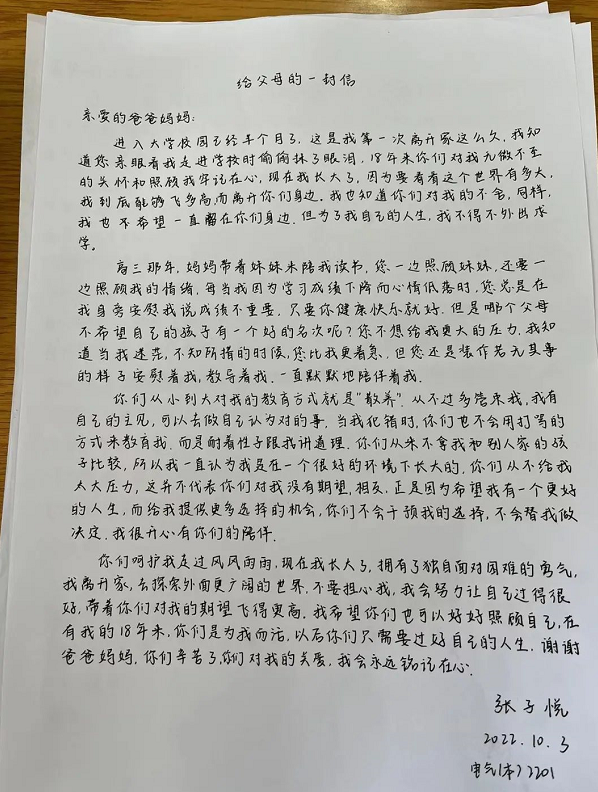 给父母的一封信
亲爱的爸爸妈妈:
进入大学校园已经半个月了,这是我第一次离开家这么久,我知
道您亲眼看我走进学校时偷偷抹了眼泪,18年来你们对我无微不至
的关怀和照顾我牢记在心,现在我长大了,因为要看看这个世界有多大,
我到底能够飞多高而离开你们身边。我也知道你们对我的不舍,同样,
我也不希望一直留在你们身边.但为了我自己的人生,我不得不外出求
学。
高三那年,妈妈带着妹妹来陪我读书,您一边照顾妹妹,还要一
边照顾我的情绪,每当我因为学习成绩下降而心情低落时,您总是在
我身旁安慰我说成绩不重要,只要你健康快乐就好.但是哪个父母
不希望自己的孩子有一个好的名次呢?您不想给我更大的压力.我知
道当我迷茫,不知所措的时候,您比我更着急.但您还是装作若无其事
的样子安慰着我,教导着我.一直默默地陪伴着我.
你们从小到大对我的教育方式就是"散养".从不过多管束我,我有
自己的主见,可以去做自己认为对的事.当我犯错时,你们也不会用打骂的
方式来教育我.而是耐着性子跟我讲道理.你们从来不拿我和别人家的孩
子比较,所以我一直认为我是在一个很好的环境下长大的,你们从不给我
太大压力,这并不代表你们对我没有期望,相反,正是因为希望我有一个更好
的人生,而给我提供更多选择的机会,你们不会干预我的选择,不会替我做
决定.我很开心有你们的陪伴.
你们呵护我走过风风雨雨,现在我长大了,拥有了独自面对困难的勇气,
我离开家,去探索外面更广阔的世界.不要担心我,我会努力让自己过得很
好,带着你们对我的期望飞得更高.我希望你们也可以好好照顾自己,在
有我的18年来,你们是为我而活,以后你们只需要过好自己的人生.谢谢
爸爸妈妈,你们辛苦了,你们对我的关爱,我会永远铭记在心.
张子悦
2022.10.3
电气(本)2201